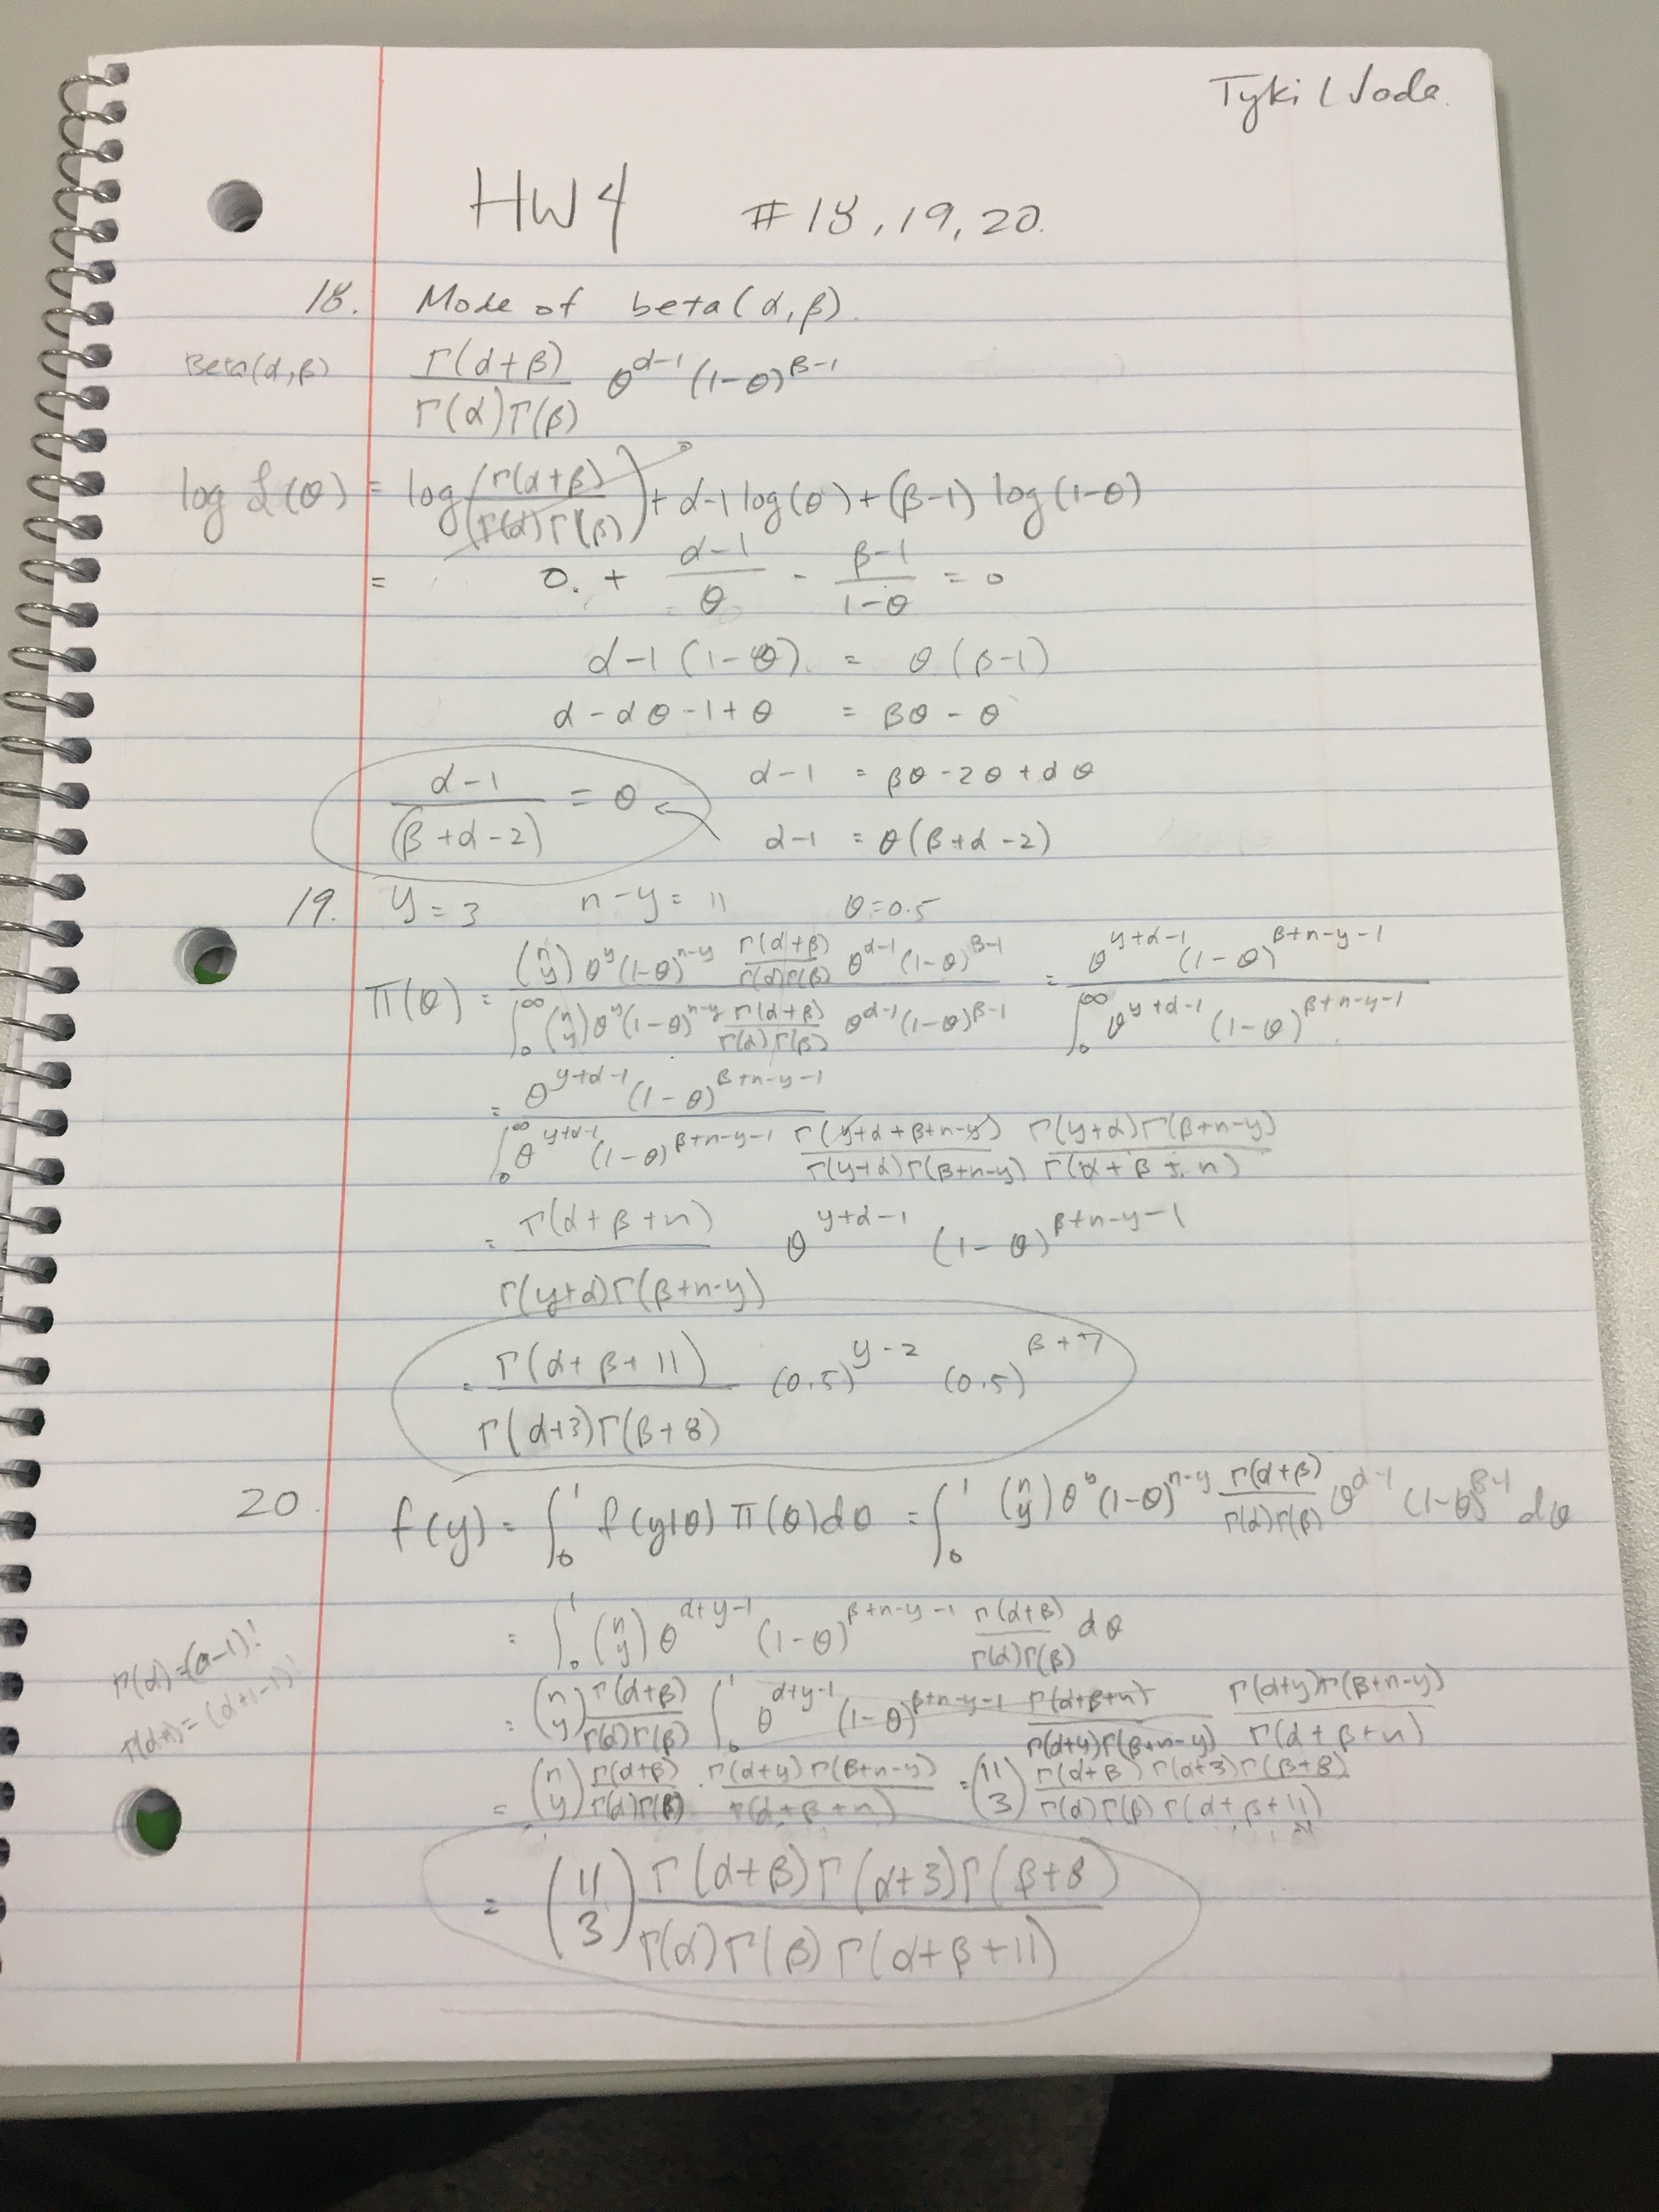 Tyki Wode.
HW4 #18, 19, 20.
18. Mode of beta(α, β).
Beta(α, β) Γ(α+β) / Γ(α)Γ(β) θ^(α-1) (1-θ)^(β-1)
log L(θ) = log(Γ(α+β) / (Γ(α)Γ(β)) + α-1 log(θ) + (β-1) log(1-θ)
= 0. + (α-1)/θ - (β-1)/(1-θ) = 0
α-1 (1-θ) = θ(β-1)
α - αθ - 1 + θ = βθ - θ
α-1 = βθ - 2θ + αθ
(α-1)/(β+α-2) = θ α-1 = θ(β+α-2)
19. y = 3 n-y = 11 θ = 0.5
π(θ) = (n y) θ^y (1-θ)^(n-y) Γ(α+β)/Γ(α)Γ(β) θ^(α-1) (1-θ)^(β-1) / ∫_0^∞ (n y) θ^y (1-θ)^(n-y) Γ(α+β)/Γ(α)Γ(β) θ^(α-1) (1-θ)^(β-1) = θ^(y+α-1) (1-θ)^(β+n-y-1) / ∫_0^∞ θ^(y+α-1) (1-θ)^(β+n-y-1)
= θ^(y+α-1) (1-θ)^(β+n-y-1) / ∫_0^∞ θ^(y+α-1) (1-θ)^(β+n-y-1) Γ(y+α+β+n-y)/Γ(y+α)Γ(β+n-y) Γ(y+α)Γ(β+n-y)/Γ(α+β+n)
= Γ(α+β+n) / Γ(y+α)Γ(β+n-y) θ^(y+α-1) (1-θ)^(β+n-y-1)
= Γ(α+β+11) / Γ(α+3)Γ(β+8) (0.5)^(y-2) (0.5)^(β+7)
20. f(y) = ∫_0^1 f(y|θ) π(θ)dθ = ∫_0^1 (n y) θ^y (1-θ)^(n-y) Γ(α+β)/Γ(α)Γ(β) θ^(α-1) (1-θ)^(β-1) dθ
= ∫_0^1 (n y) θ^(α+y-1) (1-θ)^(β+n-y-1) Γ(α+β)/Γ(α)Γ(β) dθ
Γ(α) = (α-1)!
Γ(α+1) = (α+1-1)!
= (n y) Γ(α+β)/Γ(α)Γ(β) ∫_0^1 θ^(α+y-1) (1-θ)^(β+n-y-1) Γ(α+β+n)/Γ(α+y)Γ(β+n-y) Γ(α+y)Γ(β+n-y)/Γ(α+β+n)
= (n y) Γ(α+β)/Γ(α)Γ(β) · Γ(α+y)Γ(β+n-y)/Γ(α+β+n) = (11 3) Γ(α+β)Γ(α+3)Γ(β+8)/Γ(α)Γ(β)Γ(α+β+11)
= (11 3) Γ(α+β)Γ(α+3)Γ(β+8) / Γ(α)Γ(β)Γ(α+β+11)